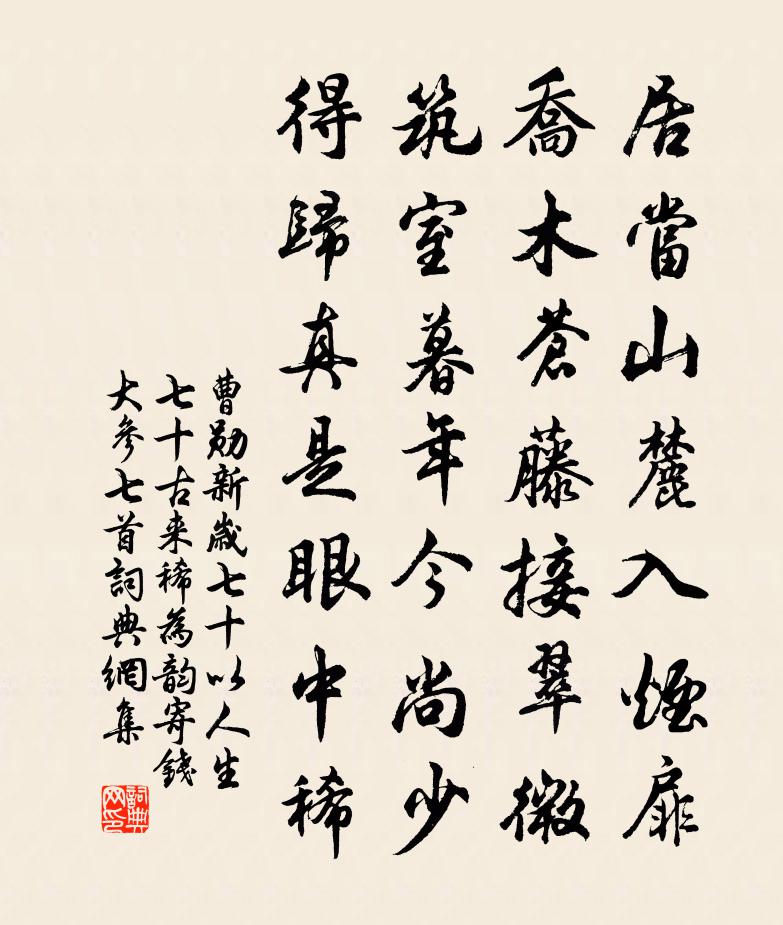 居當山麓入煙扉
喬木蒼藤接翠微
筑室暮年今尚少
得歸真是眼中稀
曹勛新歲七十以人生
七十古来稀為韵寄錢
大參七首詞典網集
詞典
网印